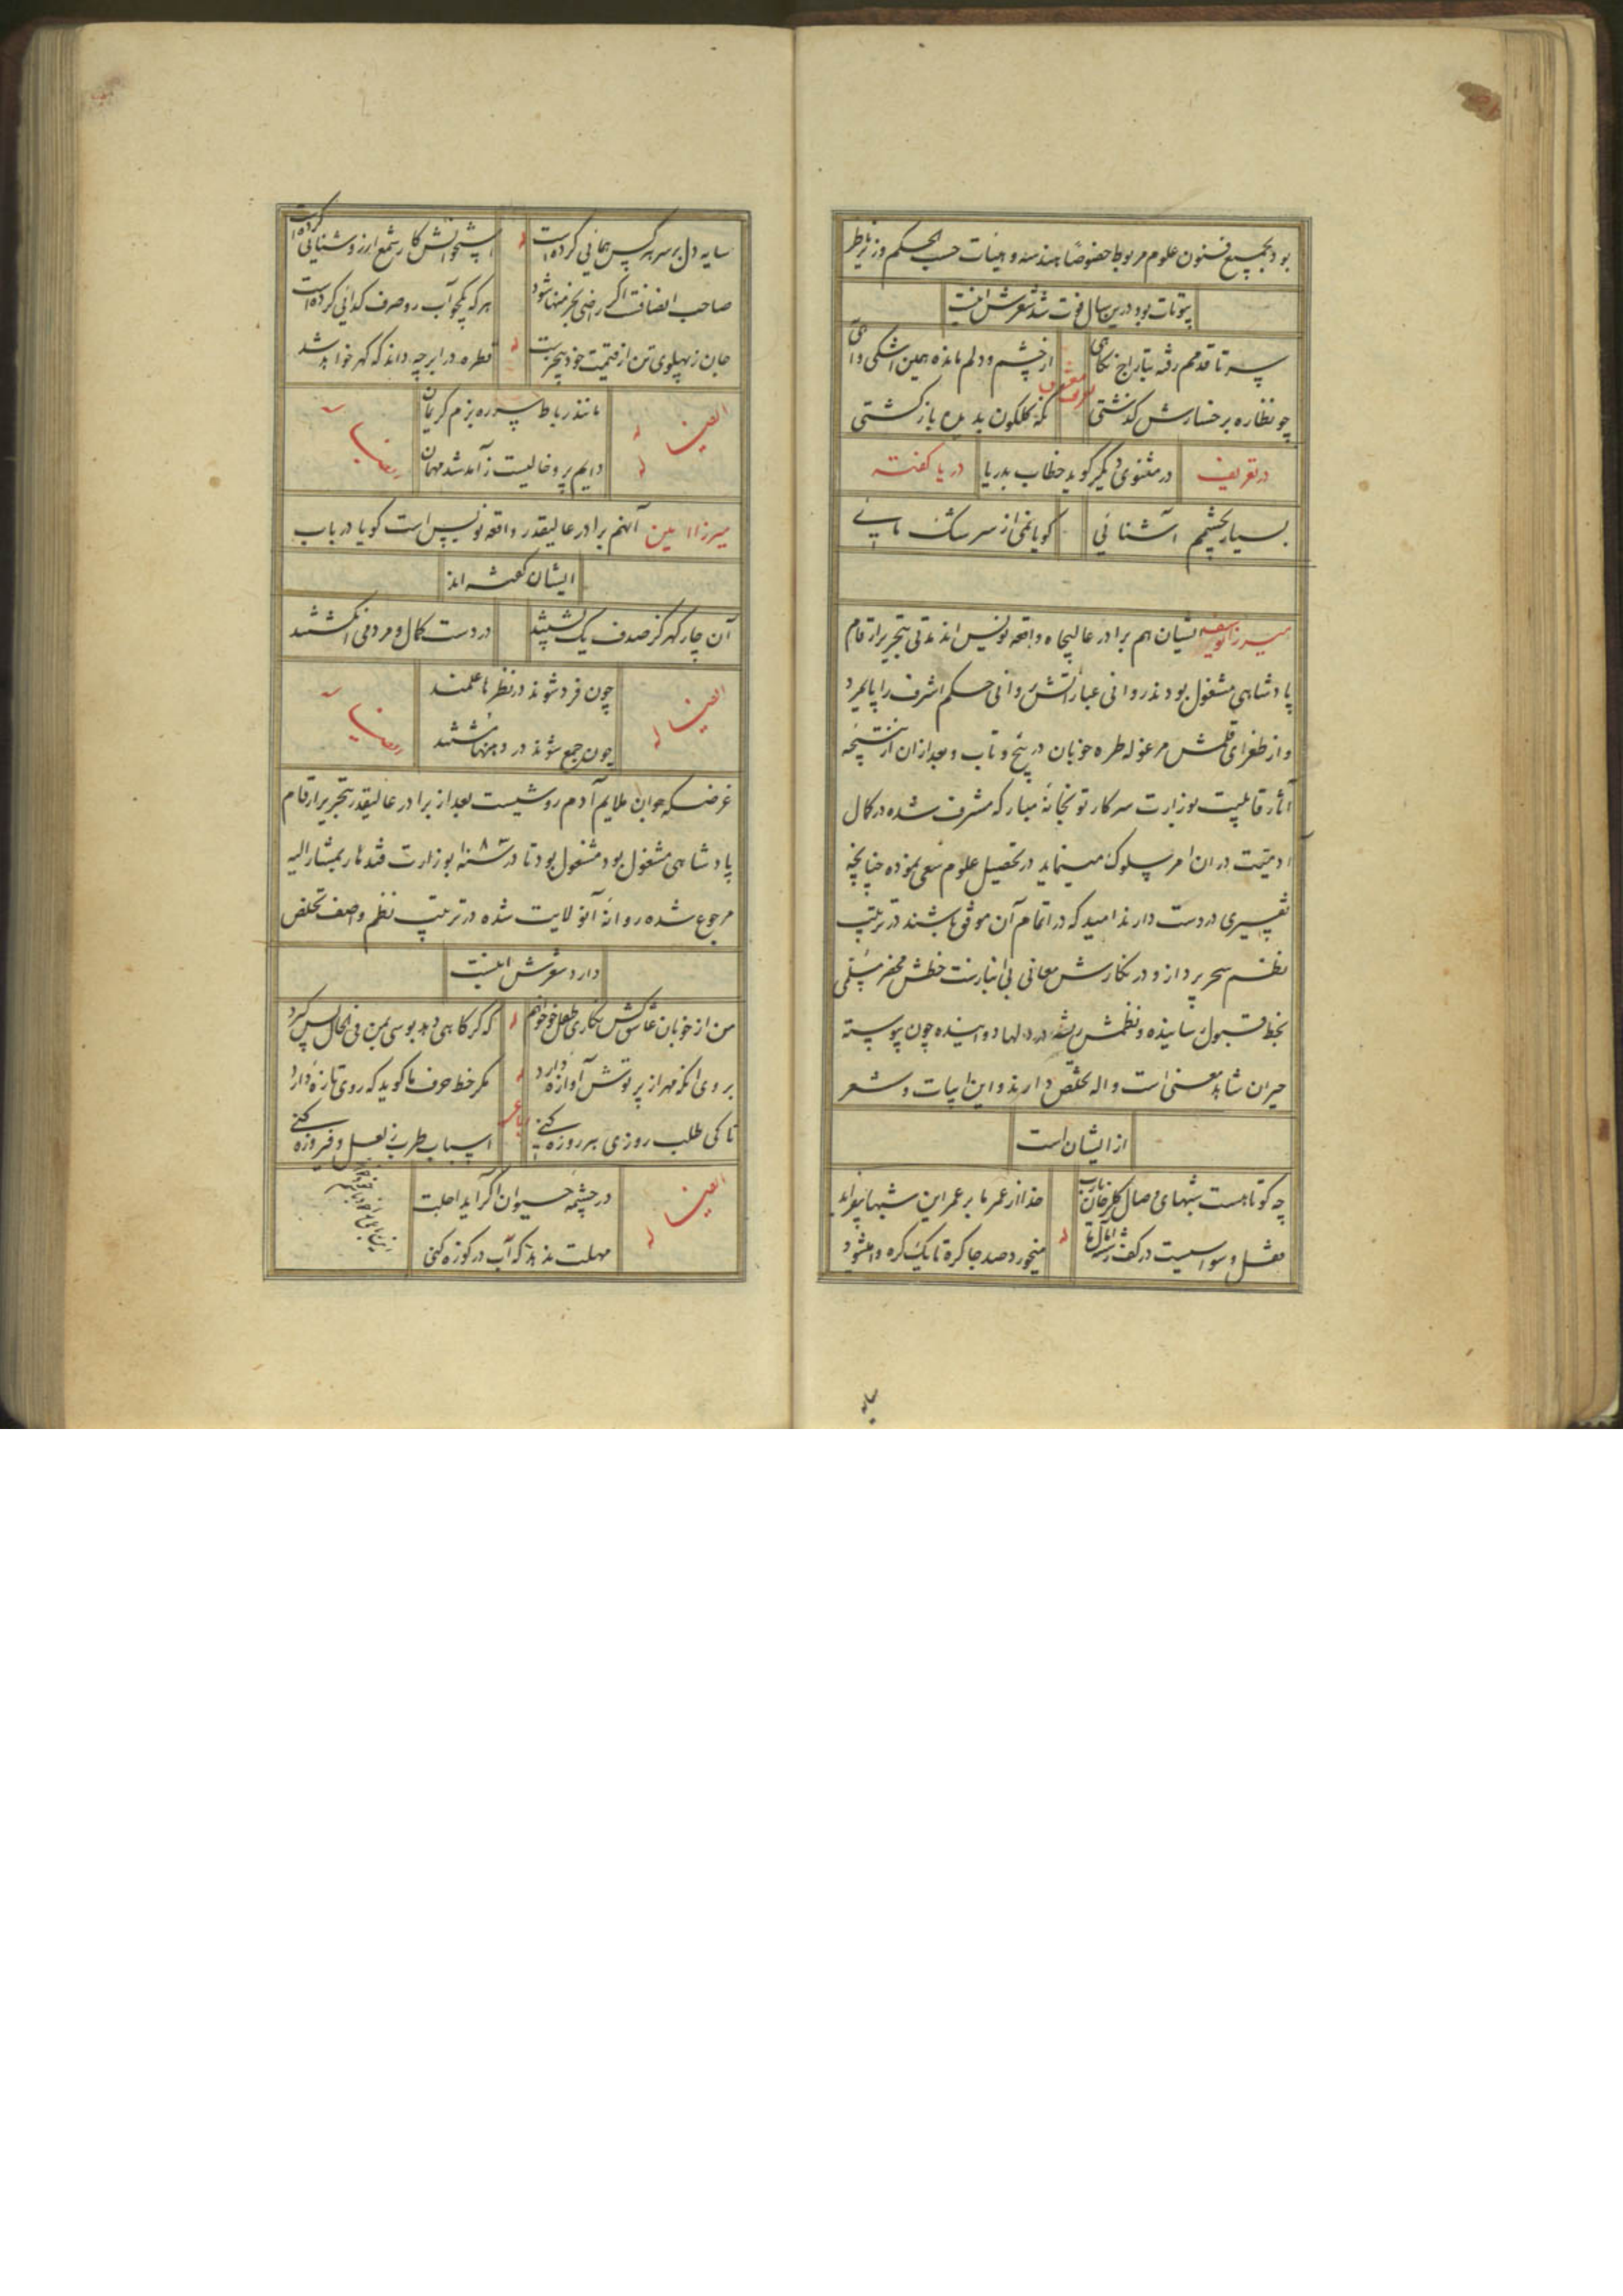 بود بجمیع فنون علوم مربوط خصوصاً هندسه و هیئات حسب الحکم وزیر ناظر
بیوتات بود درین سال فوت شد شعرش اینست
سر تا قدمم رفته بتاراج نکاهی
از چشم و دلم مانده همین اشکی و آهی
چو نظاره بر خسارش کذشتی
نکه کلکون بدیده بازکشتی
در تعریف
در مثنوی دیگر گوید خطاب بدریا
دریا کفته
بسیار بچشم آشنائی
کویا نمی از سرشک مائی
میرزا یوسف ایشان هم برادر عالیجاه واقعه نویس اند مدتی بتحریر ارقام
پادشاهی مشغول بودند روانی عباراتش روانی حکم اشرف را پایمرد
و از طغرای قلمش مرغوله طره خوبان در پیچ و تاب و بعد از ان از نتیجه
آثار قابلیت بوزارت سرکار توپخانهٔ مبارکه مشرف شده در کمال
ادمیت دران امر سلوک مینماید در تحصیل علوم سعی نموده چنانچه
تفسیری در دست دارند امید که در اتمام آن موفق باشند در ترتیب
نظم سحر پرداز و در نکارش معانی بی انبازست خطش محضر مسلمی
بخط قبول رسانیده و نظمش ریشه در دلها دوانیده چون پیوسته
حیران شاهد معنی است واله تخلص دارند و این ابیات و شعر
از ایشان است
چه کوتاهست شبهای وصال کلرخان یارب
خدا از عمر ما بر عمر این شبها بیفزاید
میخورد صد جا کره تا یک کره وا میشود
سایه دل بر سر هر کس همائی کرده است
استخوانش کار شمع از روشنایی کرده است
صاحب انصافت اکر راضی بخر منها شود
هر که یکجو آب رو صرف کدائی کرده است
جان ز پهلوی تن از قیمت خود بیخبرست
قطره در ابر چه داند که کهر خواهد شد
ایضا له
مانند رباط سر ره بزم کریمان
دایم پر و خالیست ز آمد شد مهمان
رباعی
میرزا امین آنهم برادر عالیقدر واقعه نویس است کویا در باب
ایشان کفته اند
آن چار کهر کز صدف یک پشتند
در دست کمال و مردمی انکشتند
ایضا له
چون فرد شوند در نظرها علمند
چون جمع شوند در دهنها مشتند
رباعی
غرضکه جوان ملایم آدم روشیست بعد از برادر عالیقدر بتحریر ارقام
پادشاهی مشغول بود مشغول بود تا در سنه بوزارت قندهار بمشارالیه
مرجوع شده روانهٔ آنولایت شده در ترتیب نظم واصف تخلص
دارد شعرش اینست
من از خوبان عاشق کش نکاری طفل خو خواهم
که کر کاهی دهد بوسی بمن فی الحال پس کیرد
بروی انکه مهر از پرتوش آوازه دارد
مکر خط حرف ما کوید که روی تازه دارد
تا کی طلب روزی هر روزه کنی
رباعی
اسباب طرب ز لعل و فیروزه کنی
ایضا له
در چشمهٔ حیوان اکر آید اجلت
مهلت ندهد که آب در کوزه کنی